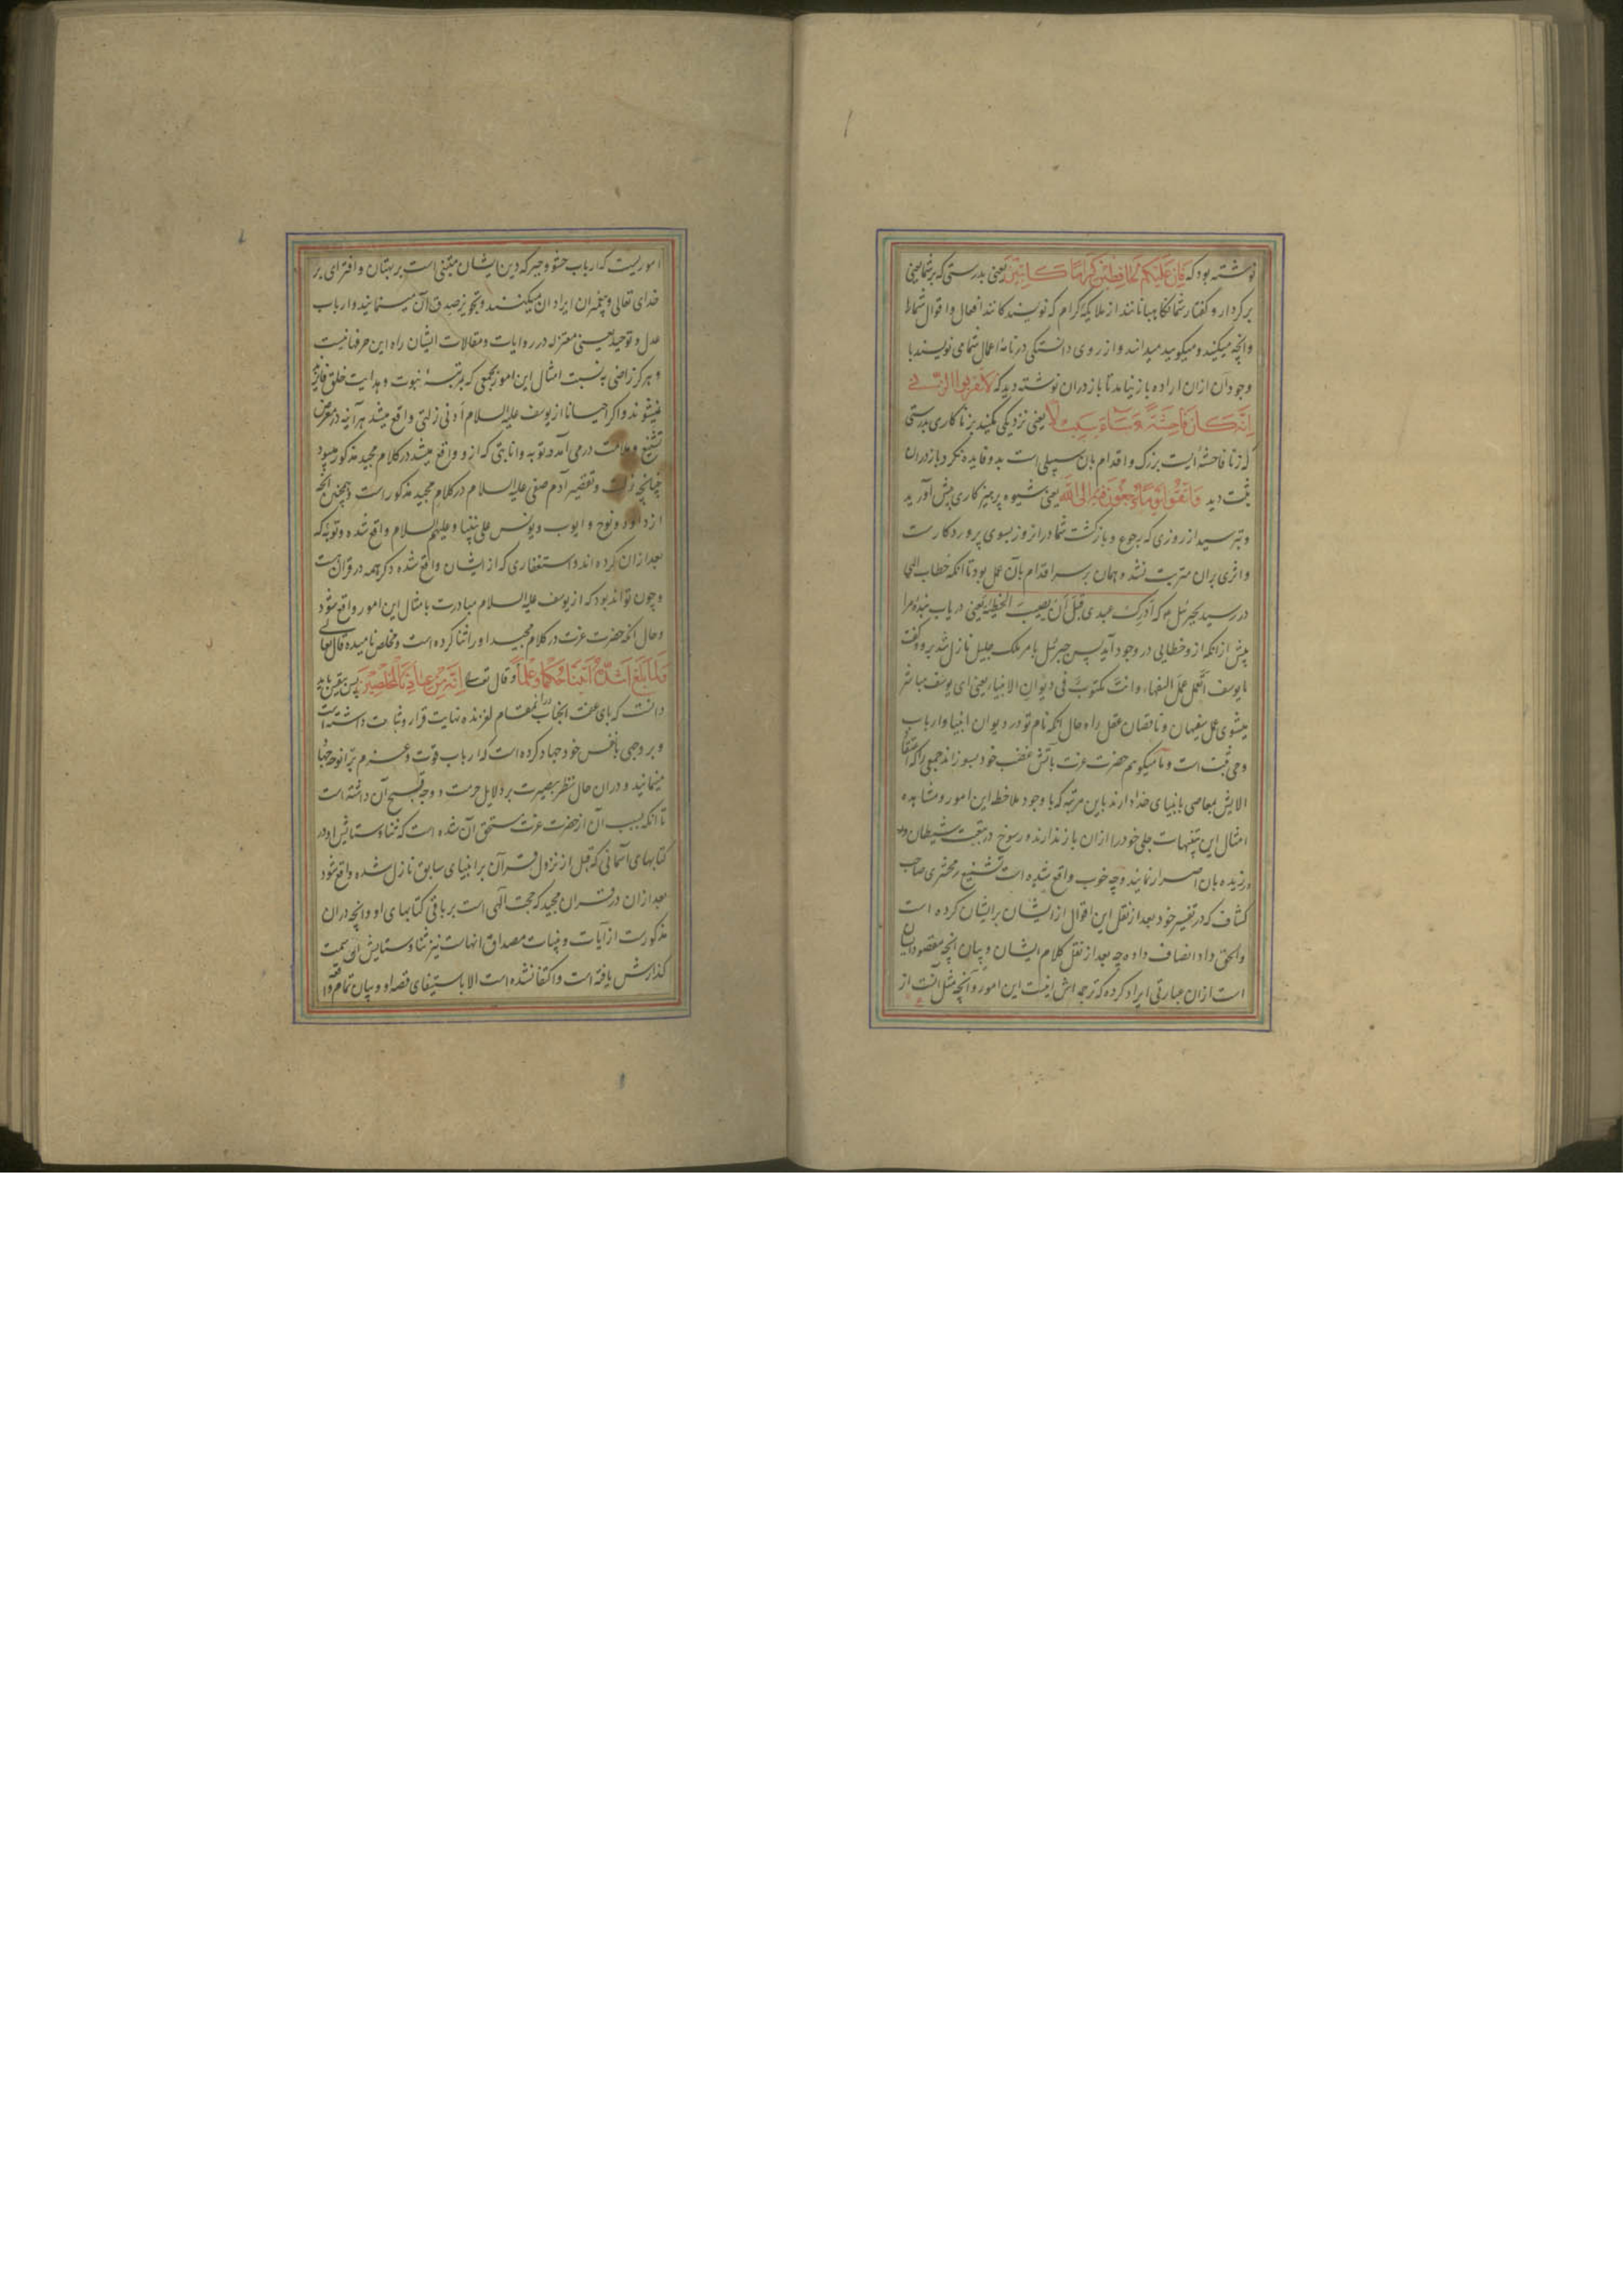 نوشته بود که وَاِنَّ عَلَیْکُمْ لَحَافِظِیْنَ کِرَامًا کَاتِبِیْنَ یعنی بدرستی که بر شما یعنی
بر کردار و گفتار شما نگاهبانانند از ملایکه کرام که نویسندکانند افعال و اقوال شما را
وانچه میکنید و میکویید میدانند و از روی دانستکی در نامه اعمال شما می نویسند با
وجود آن ازان اراده باز نیامد تا باز دران نوشته دید که لَا تَقْرَبُوا الزِّنٰی
اِنَّهُ کَانَ فَاحِشَةً وَسَاءَ سَبِیْلًا یعنی نزدیکی مکنید بزنا کاری بدرستی
که زنا فاحشه ایست بزرک و اقدام بان سبیلی است بد و فایده نکرد باز دران
ثبت دید وَاتَّقُوْا یَوْمًا تُرْجَعُوْنَ فِیْهِ اِلَی اللّٰهِ یعنی شیوه پرهیزکاری پیش آورید
و بترسید از روزی که رجوع و بازکشت شما دران روز بسوی پروردکارست
و اثری بران مترتب نشد و همان بر سر اقدام بآن عمل بود تا انکه خطاب الهی
در رسید بجبرئیل که اَدْرِکْ عبدی قَبْلَ اَنْ یصیبَ الخطیئة یعنی دریاب بنده مرا
پیش ازانکه ازو خطایی در وجود آید پس جبرئیل بامر ملک جلیل نازل شد برو و گفت
یا یوسف أتعمل عمل السفهاء وانت مکتوب فی دیوان الانبیاء یعنی ای یوسف مباشر
میشوی عمل سفیهان و ناقصان عقل را و حال انکه نام تو در دیوان انبیا و ارباب
وحی ثبت است و ما میکوییم حضرت عزت بآتش غضب خود بسوزاند جمعی را که اعتقاد
الایش بمعاصی بانبیای خدا دارند باین مرتبه که با وجود ملاحظه این امور و مشاهده
امثال این تنبیهات جلی خود را ازان باز ندارند و رسوخ در متابعت شیطان
ورزیده بان اصرار نمایند و چه خوب واقع شده است تشنیع زمخشری صاحب
کشاف که در تفسیر خود بعد از نقل این اقوال از ایشان بر ایشان کرده است
والحق داد انصاف داده چه بعد از نقل کلام ایشان و بیان انچه مقصود ایشان
است ازان عبارتی ایراد کرده که ترجمه اش اینست این امور و آنچه مثل آنست از
اموریست که ارباب حشو و جبر که دین ایشان مبتنی است بر بهتان و افترای بر
خدای تعالی و پیغمبران ایراد ان میکنند و تجویز صدق آن مینمایند و ارباب
عدل و توحید یعنی معتزله در روایات و مقالات ایشان راه این حرفها نیست
و هرکز راضی به نسبت امثال این امور بجمعی که بمرتبهٔ نبوت و هدایت خلق فایزند
نمیشوند و اکر احیانا از یوسف علیه السلام أدنی زلتی واقع میشد هر آینه در معرض
تشنیع و ملامت در می آمد و توبه و انابتی که ازو واقع میشد در کلام مجید مذکور میبود
چنانچه زلت و تقصیر آدم صفی علیه السلام در کلام مجید مذکور است و همچنین انچه
از داود و نوح و ایوب و یونس علی نبینا و علیهم السلام واقع شده و توبه که
بعد ازان کرده اند و استغفاری که از ایشان واقع شده ذکر همه در قرآن هست
و چون تواند بود که از یوسف علیه السلام مبادرت بامثال این امور واقع شود
و حال انکه حضرت عزت در کلام مجید او را ثنا کرده است و مخلص نامیده قال تعالی
فَلَمَّا بَلَغَ اَشُدَّهُ اٰتَیْنَاهُ حُکْمًا وَعِلْمًا و قال تعا اِنَّهُ مِنْ عِبَادِنَا الْمُخْلَصِیْنَ پس یقین باید
دانست که پای عفت انجناب درانمقام لغزنده نهایت قرار و ثبات داشته است
و بر وجهی با نفس خود جهاد کرده است که ارباب قوت و عزم بر انوجه جهاد
مینمایند و دران حال نظر بصیرت بر دلایل حرمت و وجه قبح آن داشته است
تا انکه بسبب آن از حضرت عزت مستحق آن شده است که ثنا و ستایش او در
کتابهای آسمانی که قبل از نزول قرآن بر انبیای سابق نازل شده واقع شود
بعد ازان در قرآن مجید که حجت آلهی است بر باقی کتابهای او و انچه دران
مذکورست از آیات و بینات مصداق انهاست نیز ثنا و ستایش او سمت
کذارش یافته است و اکتفا نشده است الا باستیفای قصه او و بیان تمام